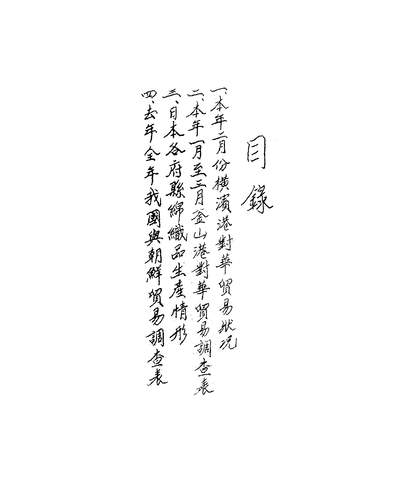 目錄
一、本年二月份橫濱港對華貿易狀况
二、本年一月至三月釜山港對華貿易調查表
三、日本各府縣綿織品生產情形
四、去年全年我國與朝鮮貿易調查表